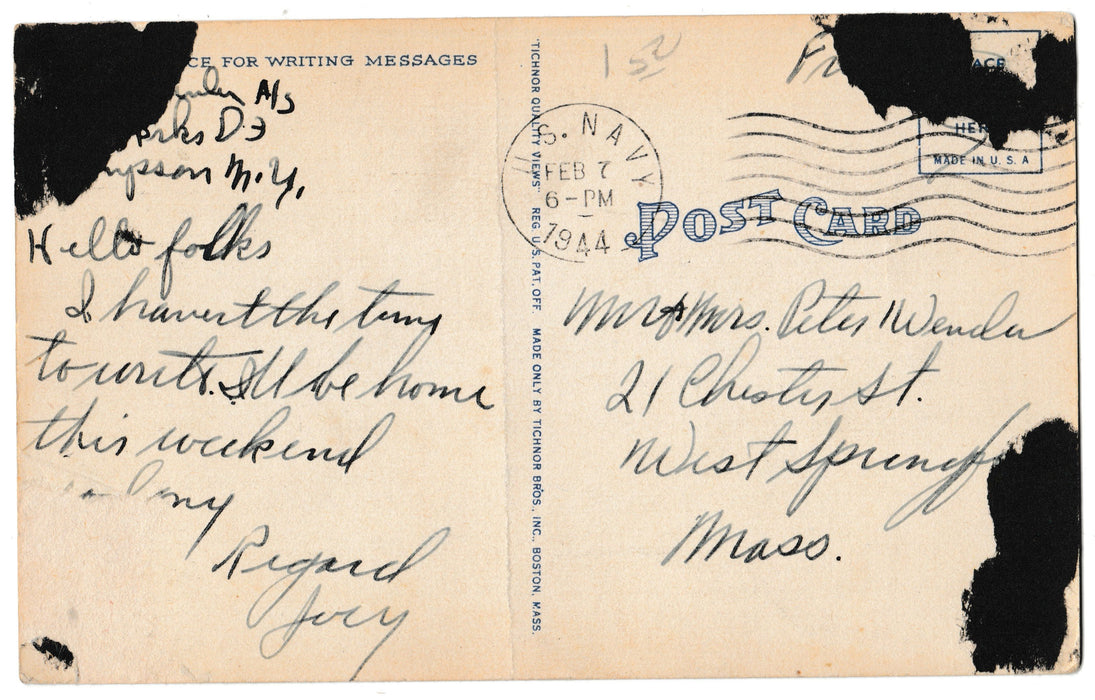 CE FOR WRITING MESSAGES
A/S
D-3
N.Y.
Hello folks
I haven't the time
to write. I'll be home
this weekend
Regard
Joey
"TICHNOR QUALITY VIEWS" REG. U.S. PAT. OFF. MADE ONLY BY TICHNOR BROS., INC., BOSTON, MASS.
1 50
U.S. NAVY
FEB 7
6-PM
1944
ACE
HER
MADE IN U.S.A
POST CARD
Mr & Mrs. Peter
21 St.
West Springf
Mass.